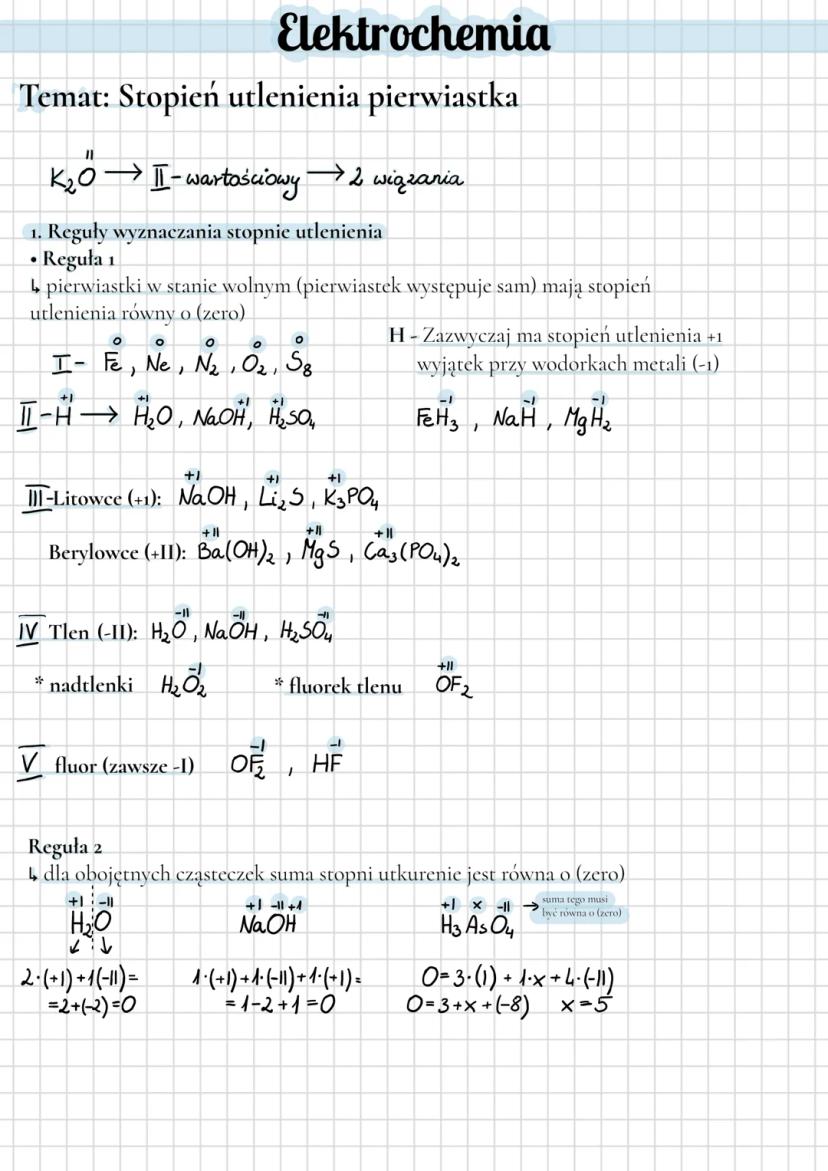 Elektrochemia
Temat: Stopień utlenienia pierwiastka
II
K₂O → II-wartościowy → 2 wiązania
1. Reguły wyznaczania stopnie utlenienia
• Reguła 1
↳ pierwiastki w stanie wolnym (pierwiastek występuje sam) mają stopień
utlenienia równy 0 (zero)
H - Zazwyczaj ma stopień utlenienia +1
wyjątek przy wodorkach metali (-1)
0 0 0 0 0
I- Fe, Ne, N₂, O₂, S₈
+I +I +I +I
II-H → H₂O, NaOH, H₂SO₄
-I -I -I
FeH₃, NaH, MgH₂
+I +I +I
III-Litowce (+1): NaOH, Li₂S, K₃PO₄
+II +II +II
Berylowce (+II): Ba(OH)₂, MgS, Ca₃(PO₄)₂
-II -II -II
IV Tlen (-II): H₂O, NaOH, H₂SO₄
-I +II
* nadtlenki H₂O₂ * fluorek tlenu OF₂
-I -I
V fluor (zawsze -I) OF₂, HF
Reguła 2
↳ dla obojętnych cząsteczek suma stopni utkurenie jest równa 0 (zero)
+I -II
H₂O
+I -II +1
NaOH
+I x -II → suma tego musi
być równa 0 (zero)
H₃AsO₄
2·(+1)+1(-II)=
=2+(-2)=0
1·(+1)+1·(-II)+1·(+1)=
=1-2+1=0
0=3·(1)+1·x+4·(-II)
0=3+x+(-8) x=5